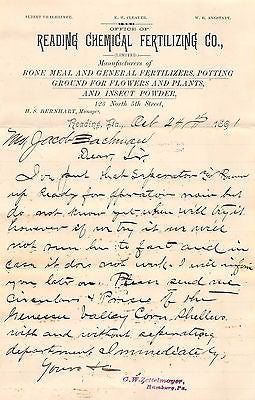 ALBERT THALHEIMER. E. H. CLEAVER. W. H. ANGSTADT.
OFFICE OF
READING CHEMICAL FERTILIZING CO.,
(LIMITED)
Manufacturers of
BONE MEAL AND GENERAL FERTILIZERS, POTTING
GROUND FOR FLOWERS AND PLANTS,
AND INSECT POWDER,
123 North 5th Street,
H. S. BERNHART, Manager.
Reading, Pa., Oct 24th 1891
Jacob Bachman
Dear Sir,
I've put that Seperator
up Ready for operation now but
do not know yet when will try it
however if we try it we will
not run it to fast and in
case it dos not work I will inform
you later on. Please send me
Circulars & Prices of the
Genessee Valley Corn Shellers
with and without seperating
department Immediately,
Yours &c
G. W. Zettelmoyer,
Hamburg, Pa.